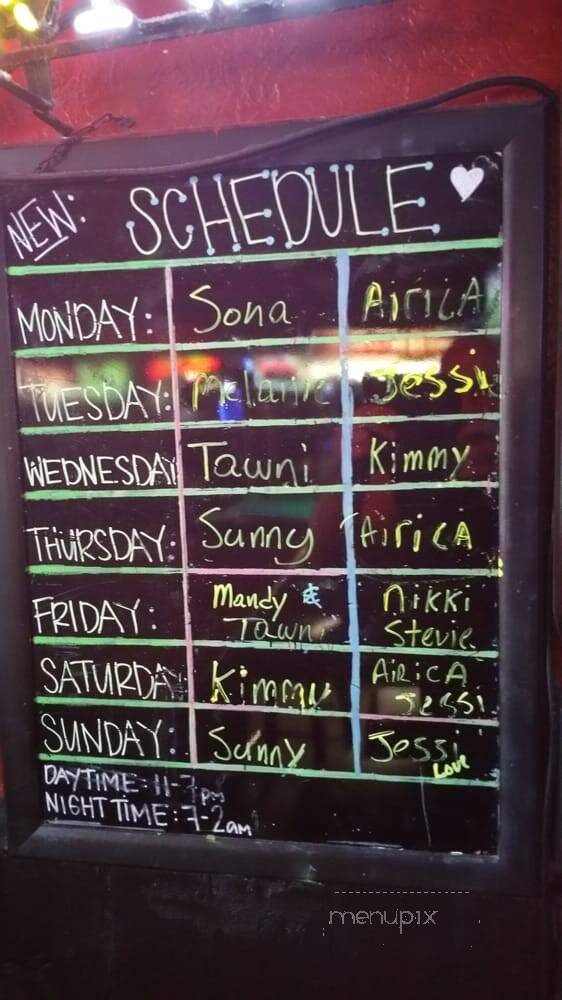 NEW: SCHEDULE
MONDAY: Sona AIRICA
TUESDAY: Melanie Jessi
WEDNESDAY Tawni Kimmy
THURSDAY: Sunny AIRICA
FRIDAY: Mandy & Nikki
Tawni Stevie
SATURDAY Kimmy AIRICA
Jessi
SUNDAY: Sunny Jessi
Love
DAYTIME: 11-7pm
NIGHT TIME: 7-2am
menupix